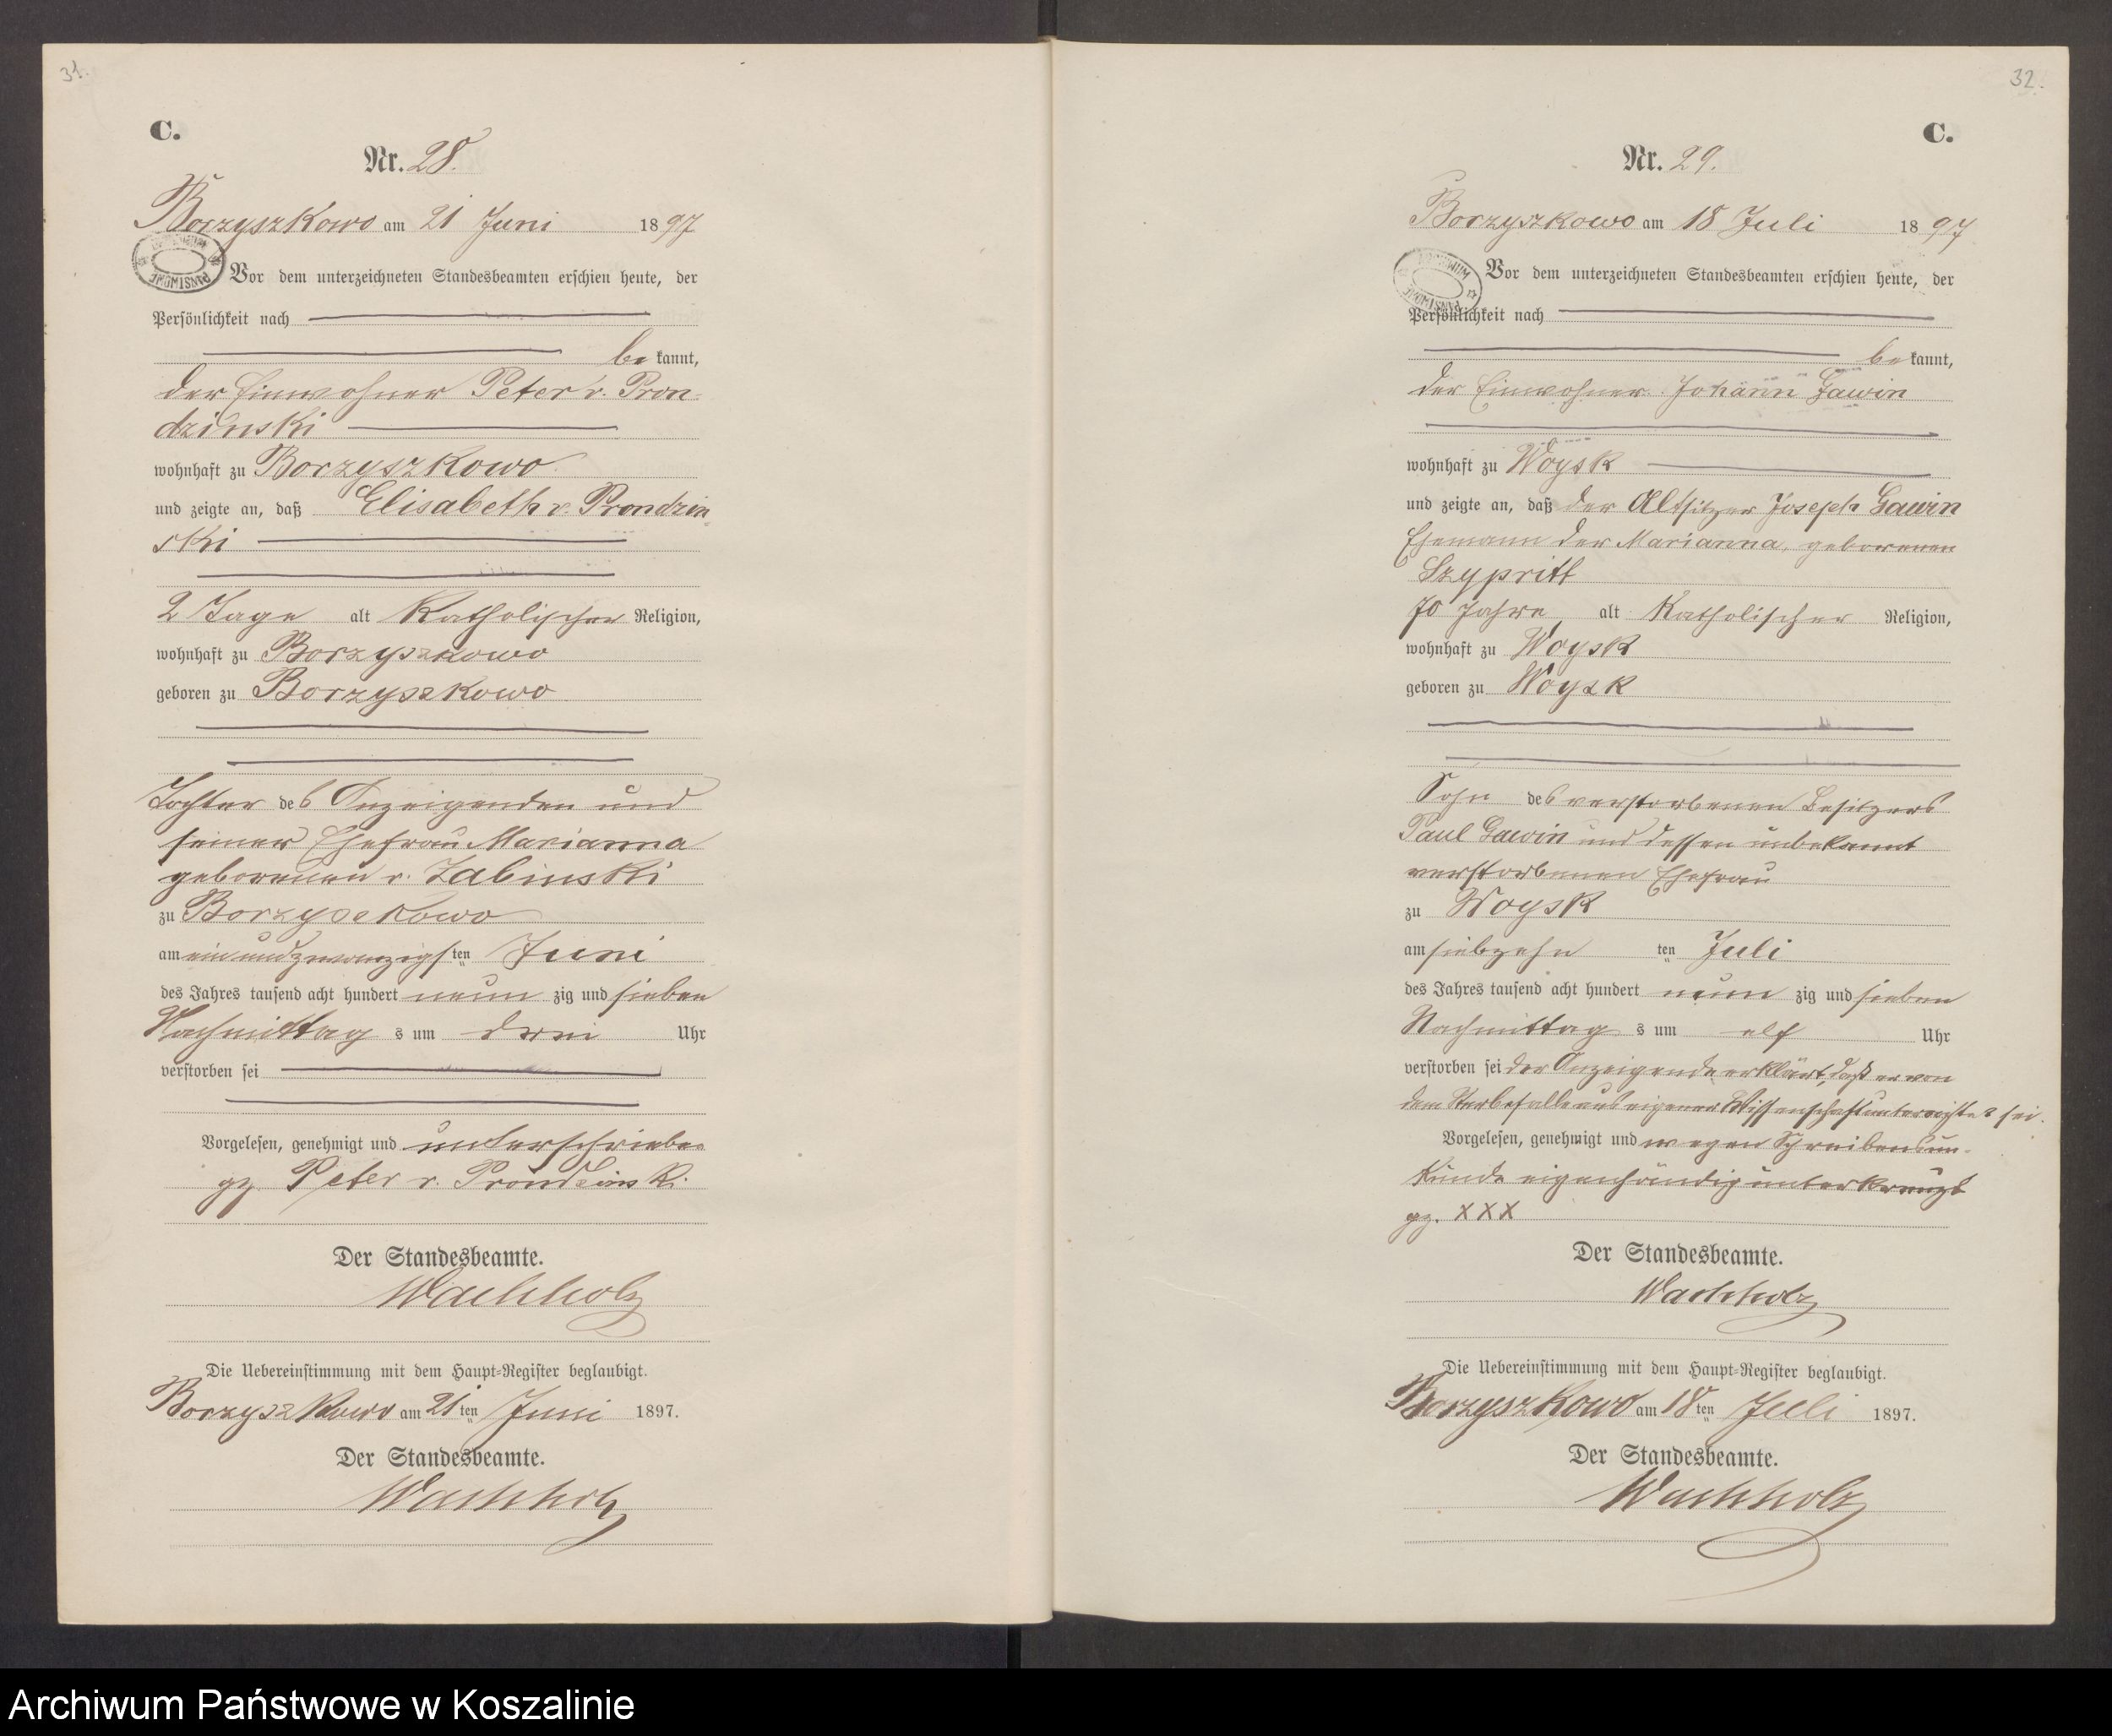 31.
C.
Nr. 28.
Borzyszkowo am 21 Juni 1897
ARCHIWUM PAŃSTWOWE
Vor dem unterzeichneten Standesbeamten erschien heute, der
Persönlichkeit nach
be kannt,
der Einwohner Peter v. Pron-
dzinski
wohnhaft zu Borzyszkowo
und zeigte an, daß Elisabeth v. Prondzin-
ski
2 Tage alt Katholischer Religion,
wohnhaft zu Borzyszkowo
geboren zu Borzyszkowo
Tochter des Anzeigenden und
seiner Ehefrau Marianna
geborenen v. Zabinski
zu Borzyszkowo
am einundzwanzigsten Juni
des Jahres tausend acht hundert neun zig und sieben
Nachmittag s um drei Uhr
verstorben sei
Vorgelesen, genehmigt und unterschrieben
gz. Peter v. Prondzinski
Der Standesbeamte.
Wachholz
Die Uebereinstimmung mit dem Haupt-Register beglaubigt.
Borzyszkowo am 21 ten Juni 1897.
Der Standesbeamte.
Wachholz
32.
C.
Nr. 29.
Borzyszkowo am 18 Juli 1897
ARCHIWUM PAŃSTWOWE
Vor dem unterzeichneten Standesbeamten erschien heute, der
Persönlichkeit nach
be kannt,
der Einwohner Johann Gawin
wohnhaft zu Woysk
und zeigte an, daß der Altsitzer Joseph Gawin
Ehemann der Marianna, geborenen
Szypritt
70 Jahre alt Katholischer Religion,
wohnhaft zu Woysk
geboren zu Woysk
Sohn des verstorbenen Besitzers
Paul Gawin und dessen unbekannt
verstorbenen Ehefrau
zu Woysk
am siebzehn ten Juli
des Jahres tausend acht hundert neun zig und sieben
Nachmittag s um elf Uhr
verstorben sei der Anzeigende erklärt, daß er von
dem Sterbefalle aus eigener Wissenschaft unterrichtet sei.
Vorgelesen, genehmigt und wegen Schreibensun-
kunde eigenhändig unterkreuzt
gz. XXX
Der Standesbeamte.
Wachholz
Die Uebereinstimmung mit dem Haupt-Register beglaubigt.
Borzyszkowo am 18 ten Juli 1897.
Der Standesbeamte.
Wachholz
Archiwum Państwowe w Koszalinie